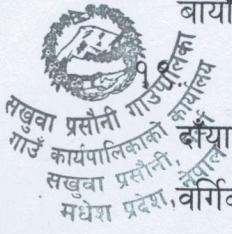 बायाँ
सखुवा प्रसौनी गाउँपालिका
गाउँ कार्यपालिकाको कार्यालय
दाँया
सखुवा प्रसौनी,
मधेश प्रदेश, नेपाल